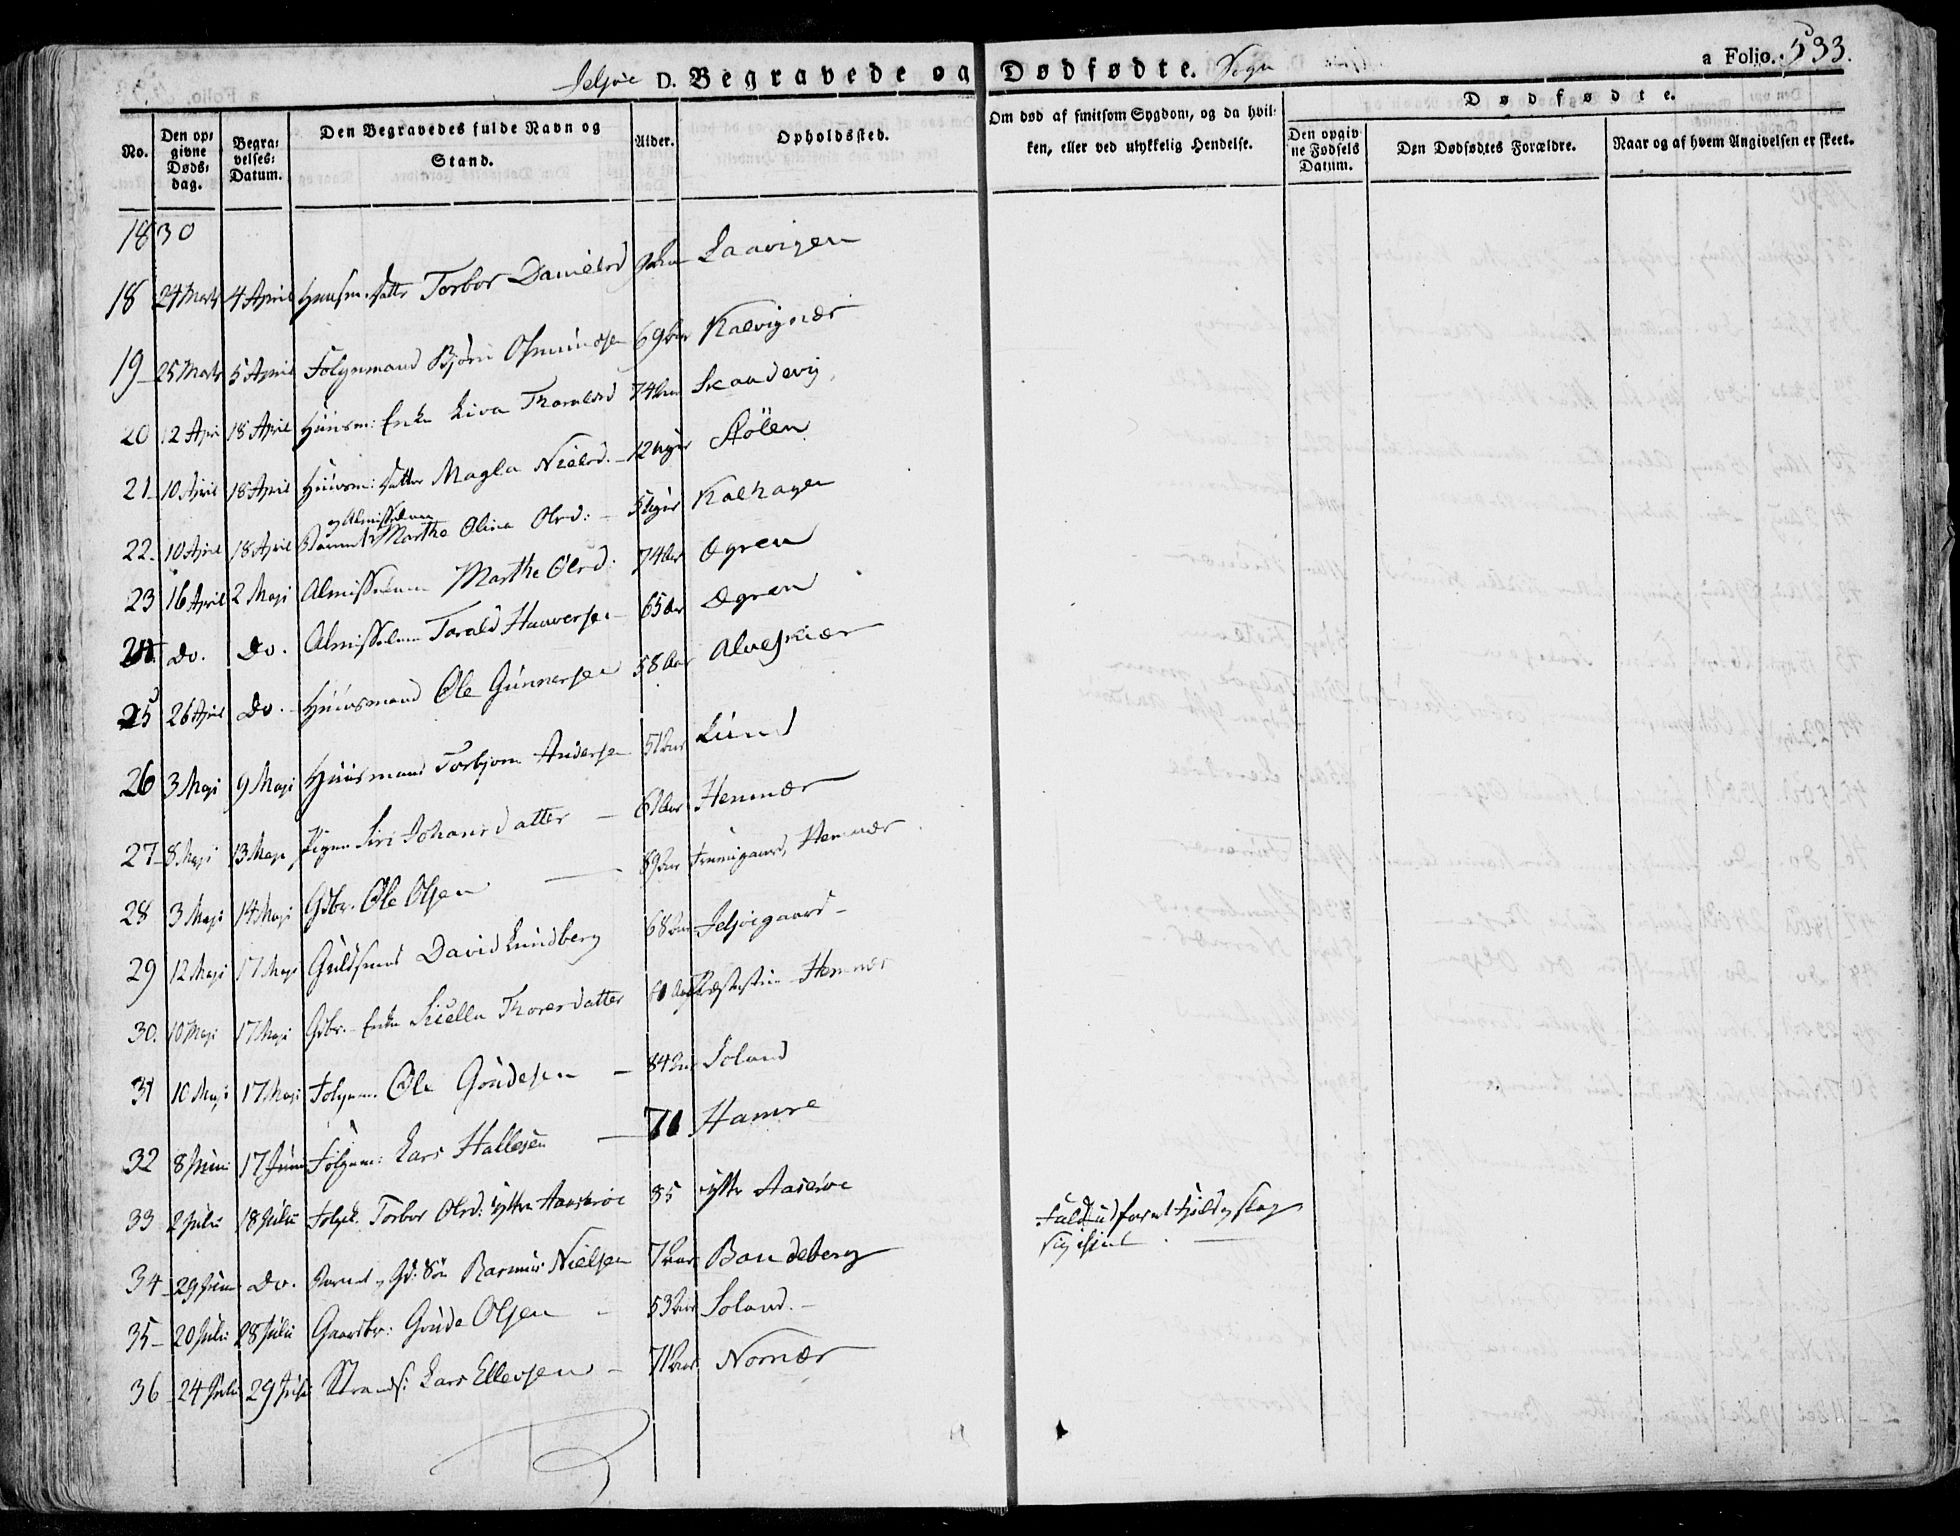 Jelsøe D. Begravede og Dødfødte. Sogn a Folio. 533.
No. Den opgivne Dødsdag. Begravelses: Datum. Den Begravedes fulde Navn og Stand. Alder. Opholdssted. Om død af smitsom Sygdom, og da hvilken, eller ved ulykkelig Hendelse. Dødfødte.
Den opgivne Fødsels Datum. Den Dødfødtes Forældre. Naar og af hvem Angivelsen er skeet.
1830
18 24 Marts 4 April Huusm. Datter Torbor Danielsd Laavigen
19 25 Marts 5 April Folgemand Bjørn Osmundsen 69 Aar Kalvignær
20 12 Apr 18 April Huusm: Enke Liva Thoralsd 74 Aar Skaadevig
21 10 April 18 April Huusm: Datter Magla Nielsd. 12 uger Stølen
22. 10 April 18 April Barnet og Almisselem Marthe Olina Olsd: 5 uger Kalhagen
23 16 April 2 Maji Almisselem Marthe Olsd. 74 Aar Ogren
24 Do. Do. Almisselem Torald Haaversen 65 Aar Ogren
25 26 April Do. Huusmand Ole Gunnersen 58 Aar Alveskiær
26 3 Maji 9 Maji Huusmand Torbjorn Andersen 51 Aar Lund
27 8 Maji 13 Maji Pigen Siri Johansdatter 61 Aar Hemnær
28 3 Maji 14 Maji Gdbr. Ole Olsen 89 Aar Hemnær
29 12 Maji 17 Maji Guldsmed David Lundberg 68 Aar Jelsøegaard
30. 10 Maji 17 Maji Gdbr. Enke Sicella Thoresdatter Hemnær
31 10 Maji 17 Maji Folgem. Ole Goudesen 84 Aar Soland
32 8 Juni 17 Juni Folgem: Lars Hallesen 71 Hamre
33 2 Julii 18 Julii Folgek. Torbor Olsd: ytre 85 ytre
34 29 Juni Do. Barnet Gd: Søn Rasmus Nielsen 7 Aar Bandeberg Fald ud for et Fjeld og slog sig ihjel
35 20 Julii 28 Julii Gaardbr: Goude Olsen 53 Aar Soland.
36 24 Julii 29 Julii Strands: Lars Ellevsen 71 Aar Nornær